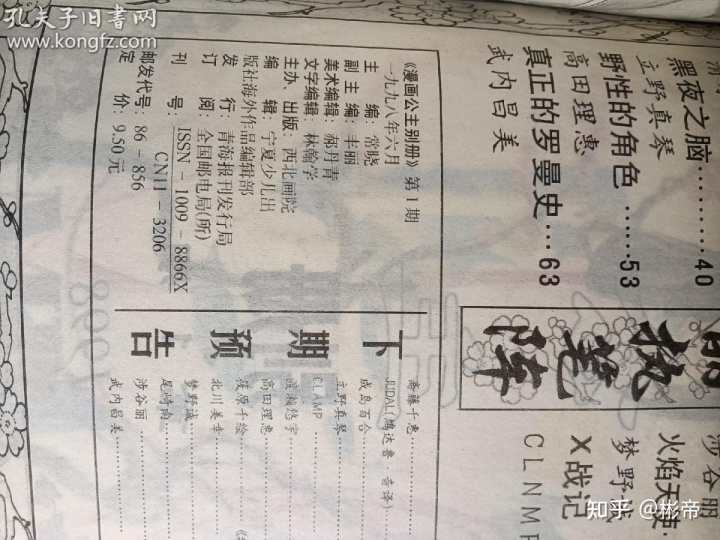 孔夫子旧书网
www.kongfz.com
黑夜之脑………40
立野真琴
野性的角色……53
高田理惠
真正的罗曼史…63
武内曰美
《漫画公主别册》第1期
一九九八年六月
主 编:常晓
副主编:丰丽
美术编辑:郝丹青
文字编辑:林翰学
主办、出版:西北画院
编 辑:宁夏少儿出
版社海外作品编辑部
发 行:青海报刊发行局
订 阅:全国邮电局(所)
刊 号:ISSN-1009-8866X
CN11-3206
邮发代号:86-856
定 价:9.50元
执笔阵
涉谷丽
火焰天使
梦野
X战记
下期预告
斋藤千惠
JUDAL(
成岛百合
立野真琴
CLAMP
高田理惠
萩原千绘
北川美幸
梦野
尾崎南
涉谷丽
武内曰美
知乎 @彬帝